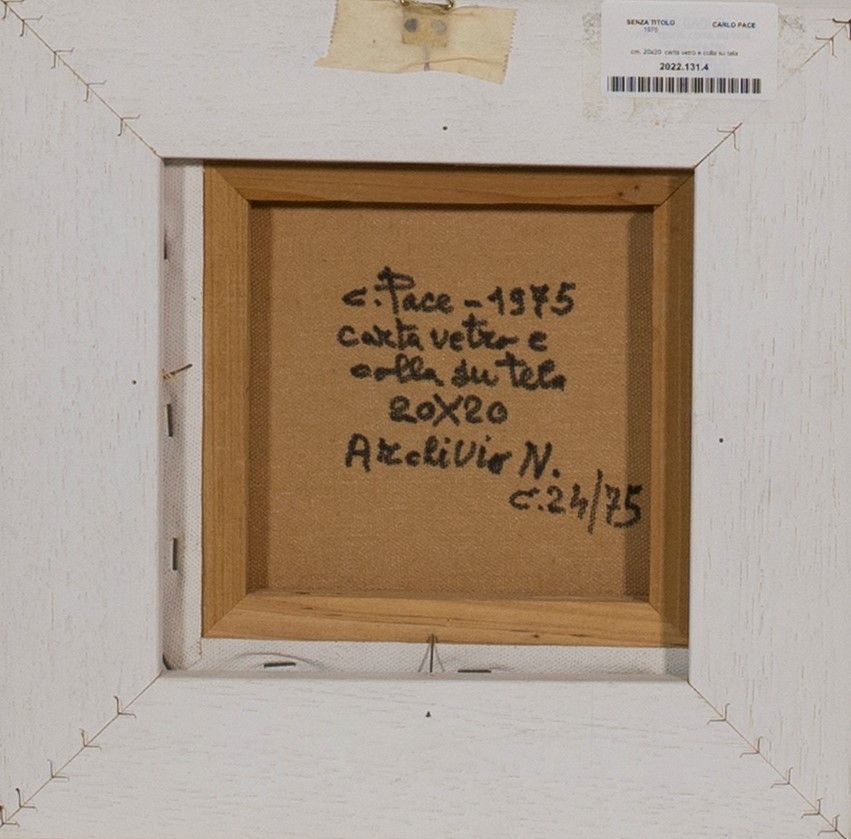 SENZA TITOLO CARLO PACE
1975
cm. 20x20 carta vetro e colla su tela
2022.131.4
C. Pace - 1975
carta vetro e
colla su tela
20X20
Archivio N.
C.24/75